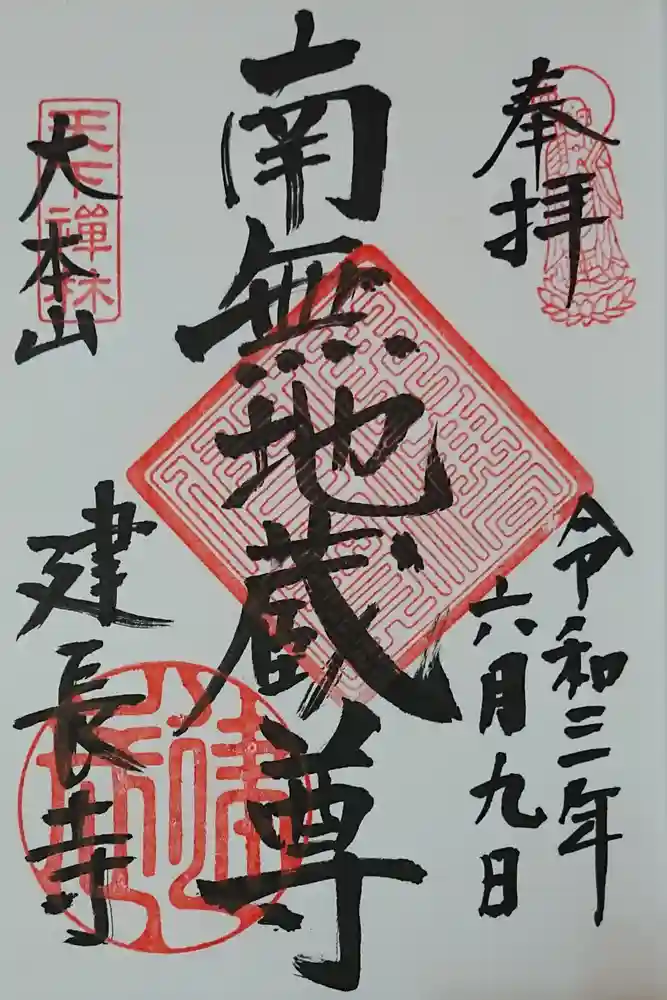 奉拝
令和三年
六月九日
南無地蔵尊
大本山
建長寺
天下禅林